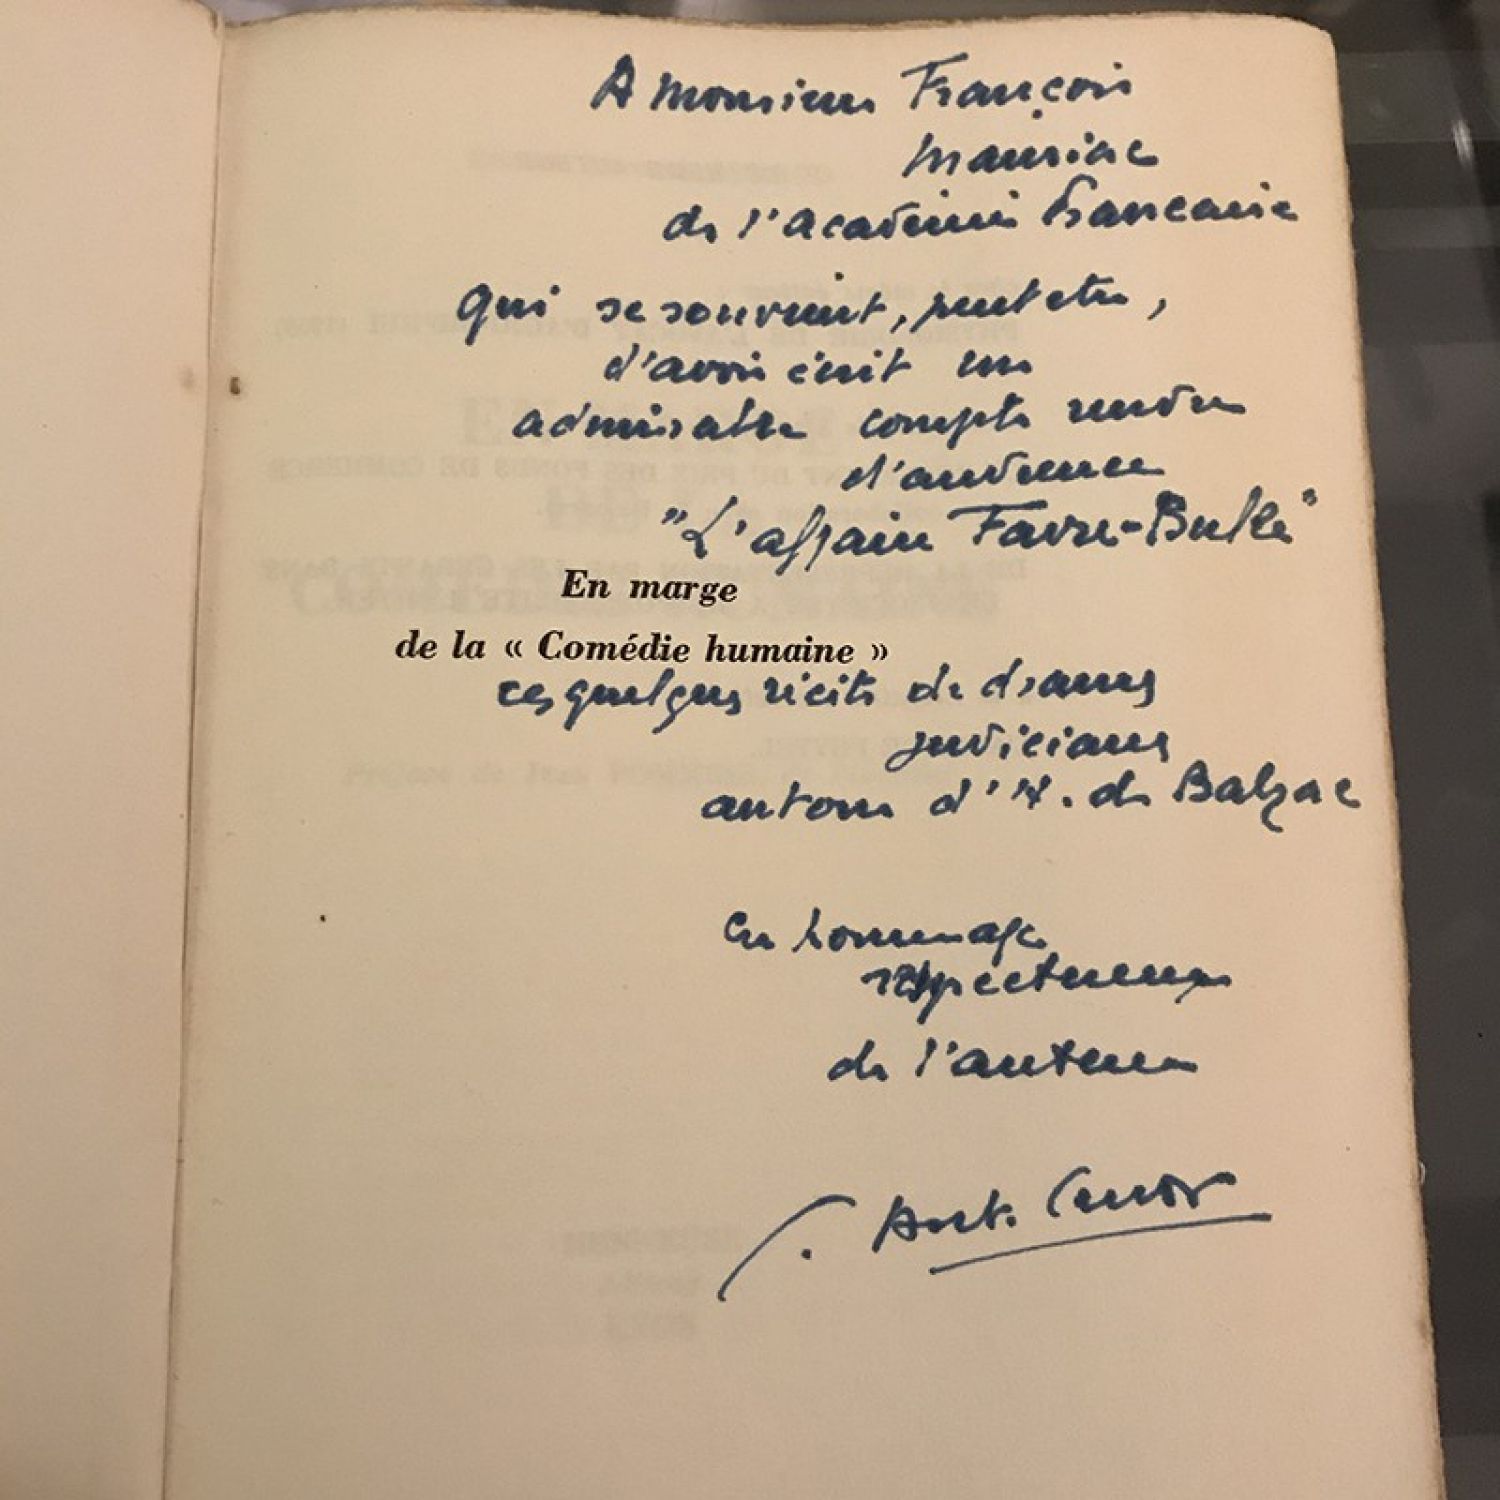 A Monsieur François
Mauriac
de l'académie Francaise
Qui se souvient, peut etre,
d'avoir écrit un
admirable compte rendu
d'audience
"L'affaire Favre-Bulle"
En marge
de la « Comédie humaine »
ces quelques récits de drames
judiciaires
autour d'H. de Balzac
En hommage
respectueux
de l'auteur